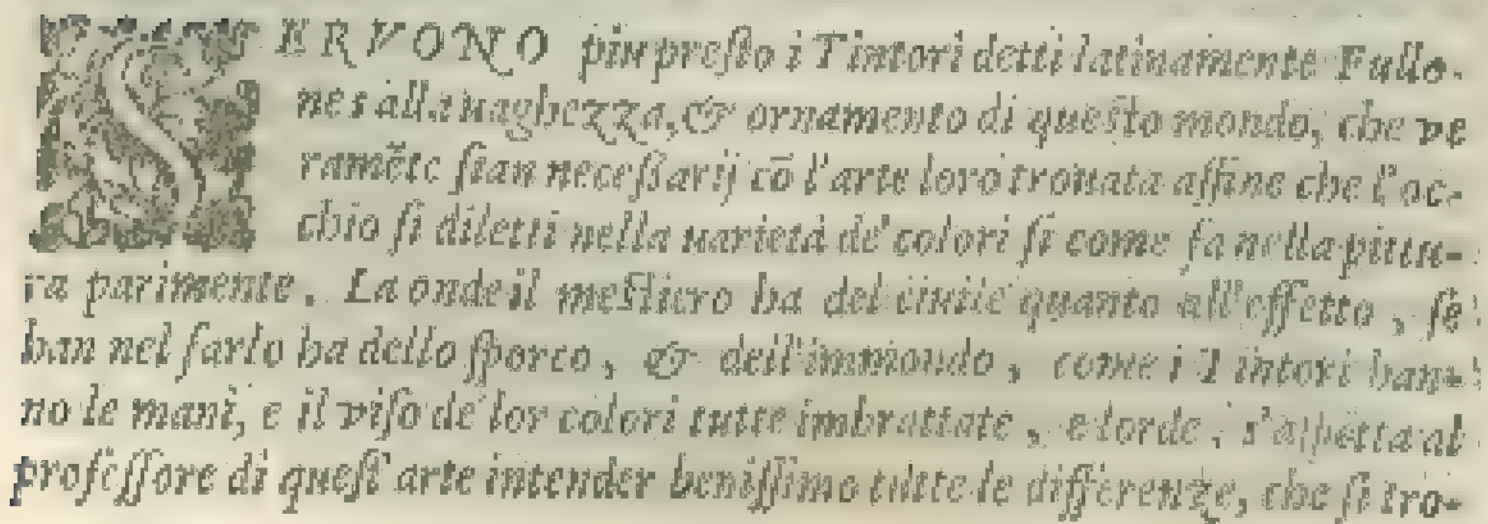 SERVONO piu presto i Tintori detti latinamente Fullo-
nes alla uaghezza, & ornamento di questo mondo, che ve
ramēte sian necessarij cō l'arte loro trouata affine che l'oc-
chio si diletti nella uarietà de' colori si come fa nella pittu-
ra parimente. La onde il mestiero ha del ciuile quanto all'effetto, se
ben nel farlo ha dello sporco, & dell'immondo, come i Tintori han-
no le mani, e il viso de' lor colori tutte imbrattate, e lorde, s'aspetta al
professore di quest'arte intender benissimo tutte le differenze, che si tro-